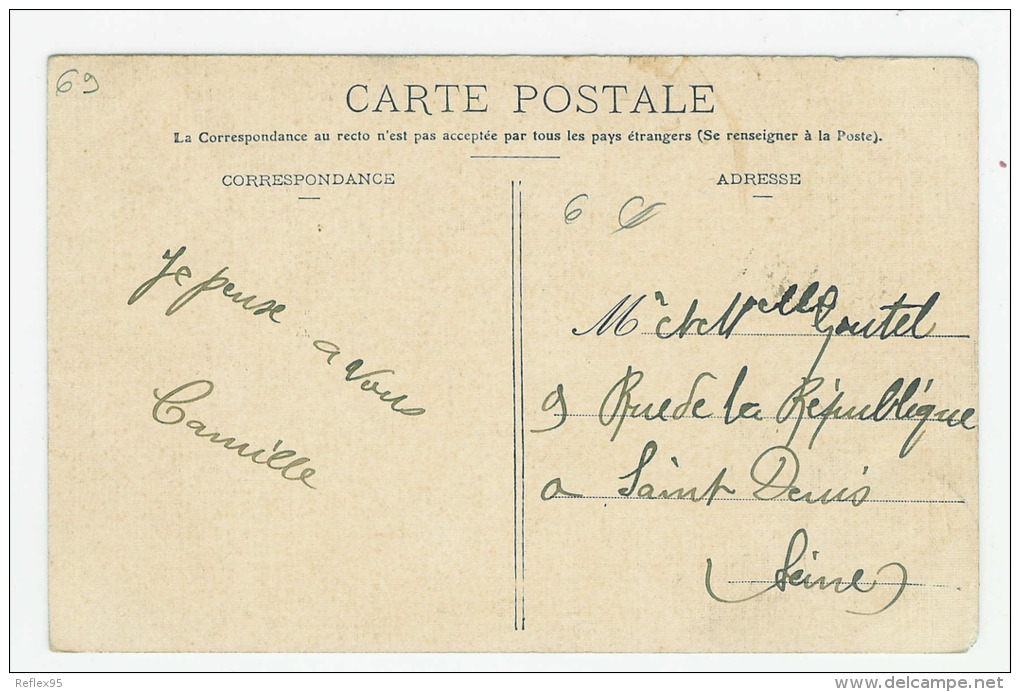 69
CARTE POSTALE
La Correspondance au recto n'est pas acceptée par tous les pays étrangers (Se renseigner à la Poste).
CORRESPONDANCE
Je pense
a vous
Camille
ADRESSE
6
Mr et Melle Goutel
9 Rue de la République
a Saint Denis
(Seine)
Reflex95
www.delcampe.net